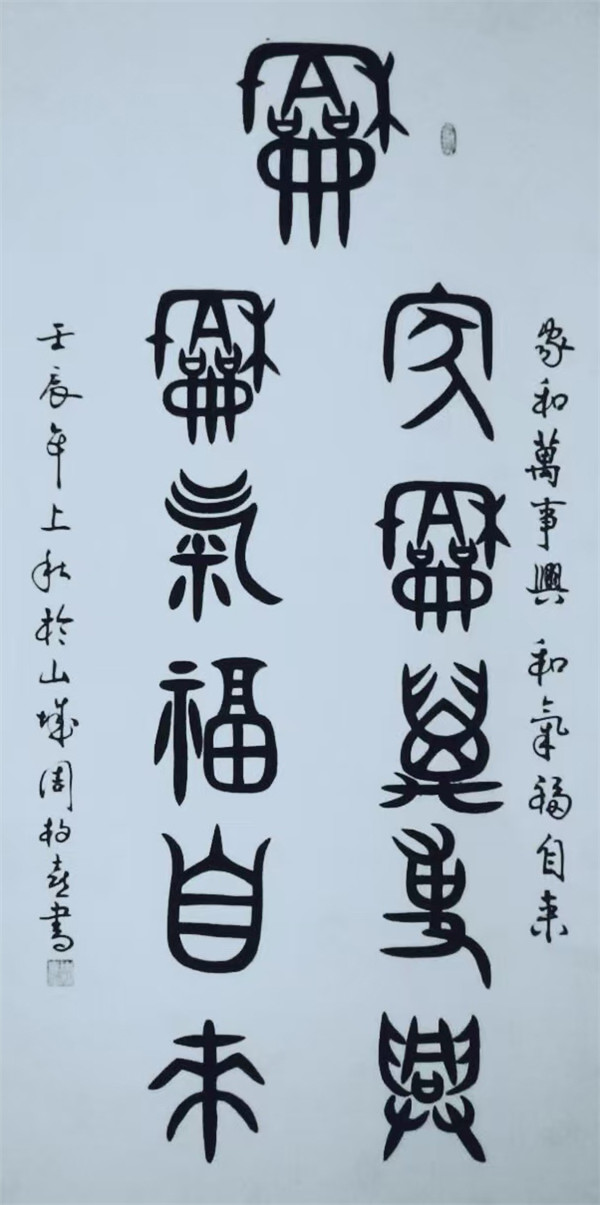 龢
家和萬事興 和氣福自来
家龢萬事興
龢氣福自来
壬辰年上秋於山城周喜書